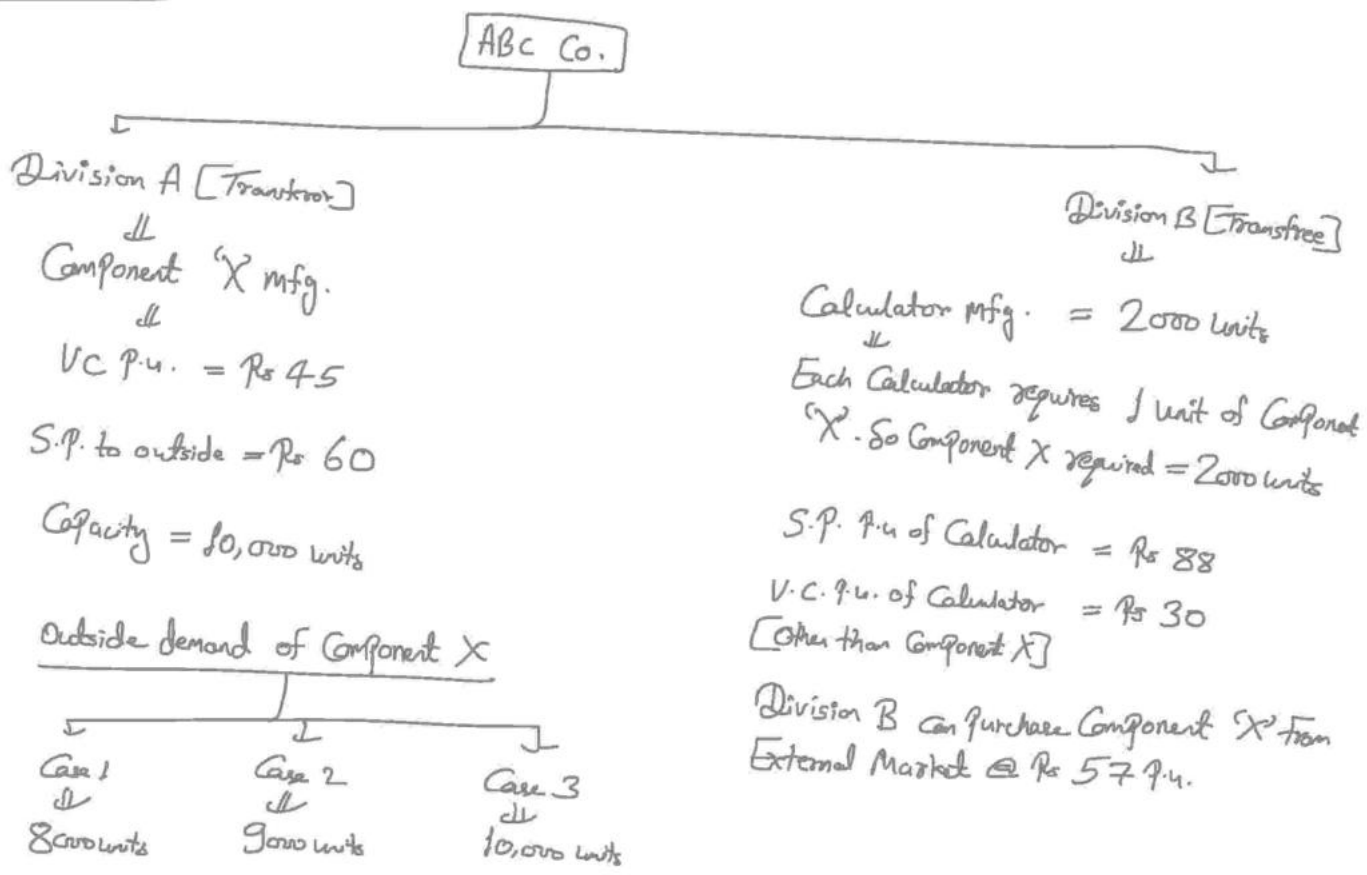 ABC Co.
Division A [Transferor]
Component 'X' mfg.
VC p.u. = Rs 45
S.P. to outside = Rs 60
Capacity = 10,000 units
Outside demand of Component X
Case 1
Case 2
Case 3
8000 units
9000 units
10,000 units
Division B [Transfree]
Calculator mfg. = 2000 units
Each Calculator requires 1 unit of Componet
'X'. So Component X required = 2000 units
S.P. P.u of Calculator = Rs 88
V.C. P.u. of Calculator = Rs 30
[Other than Component X]
Division B can purchase Component 'X' from
External Market @ Rs 57 P.u.